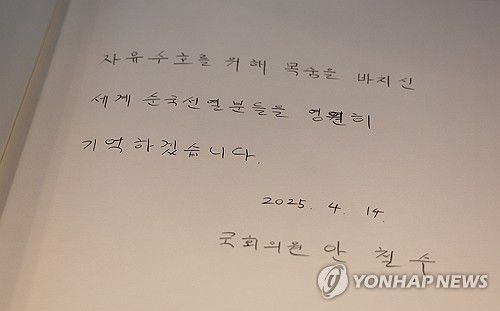 자유수호를 위해 목숨을 바치신
세계 순국선열분들을 영원히
기억하겠습니다.
2025. 4. 14.
국회의원 안 철 수
YONHAP NEWS